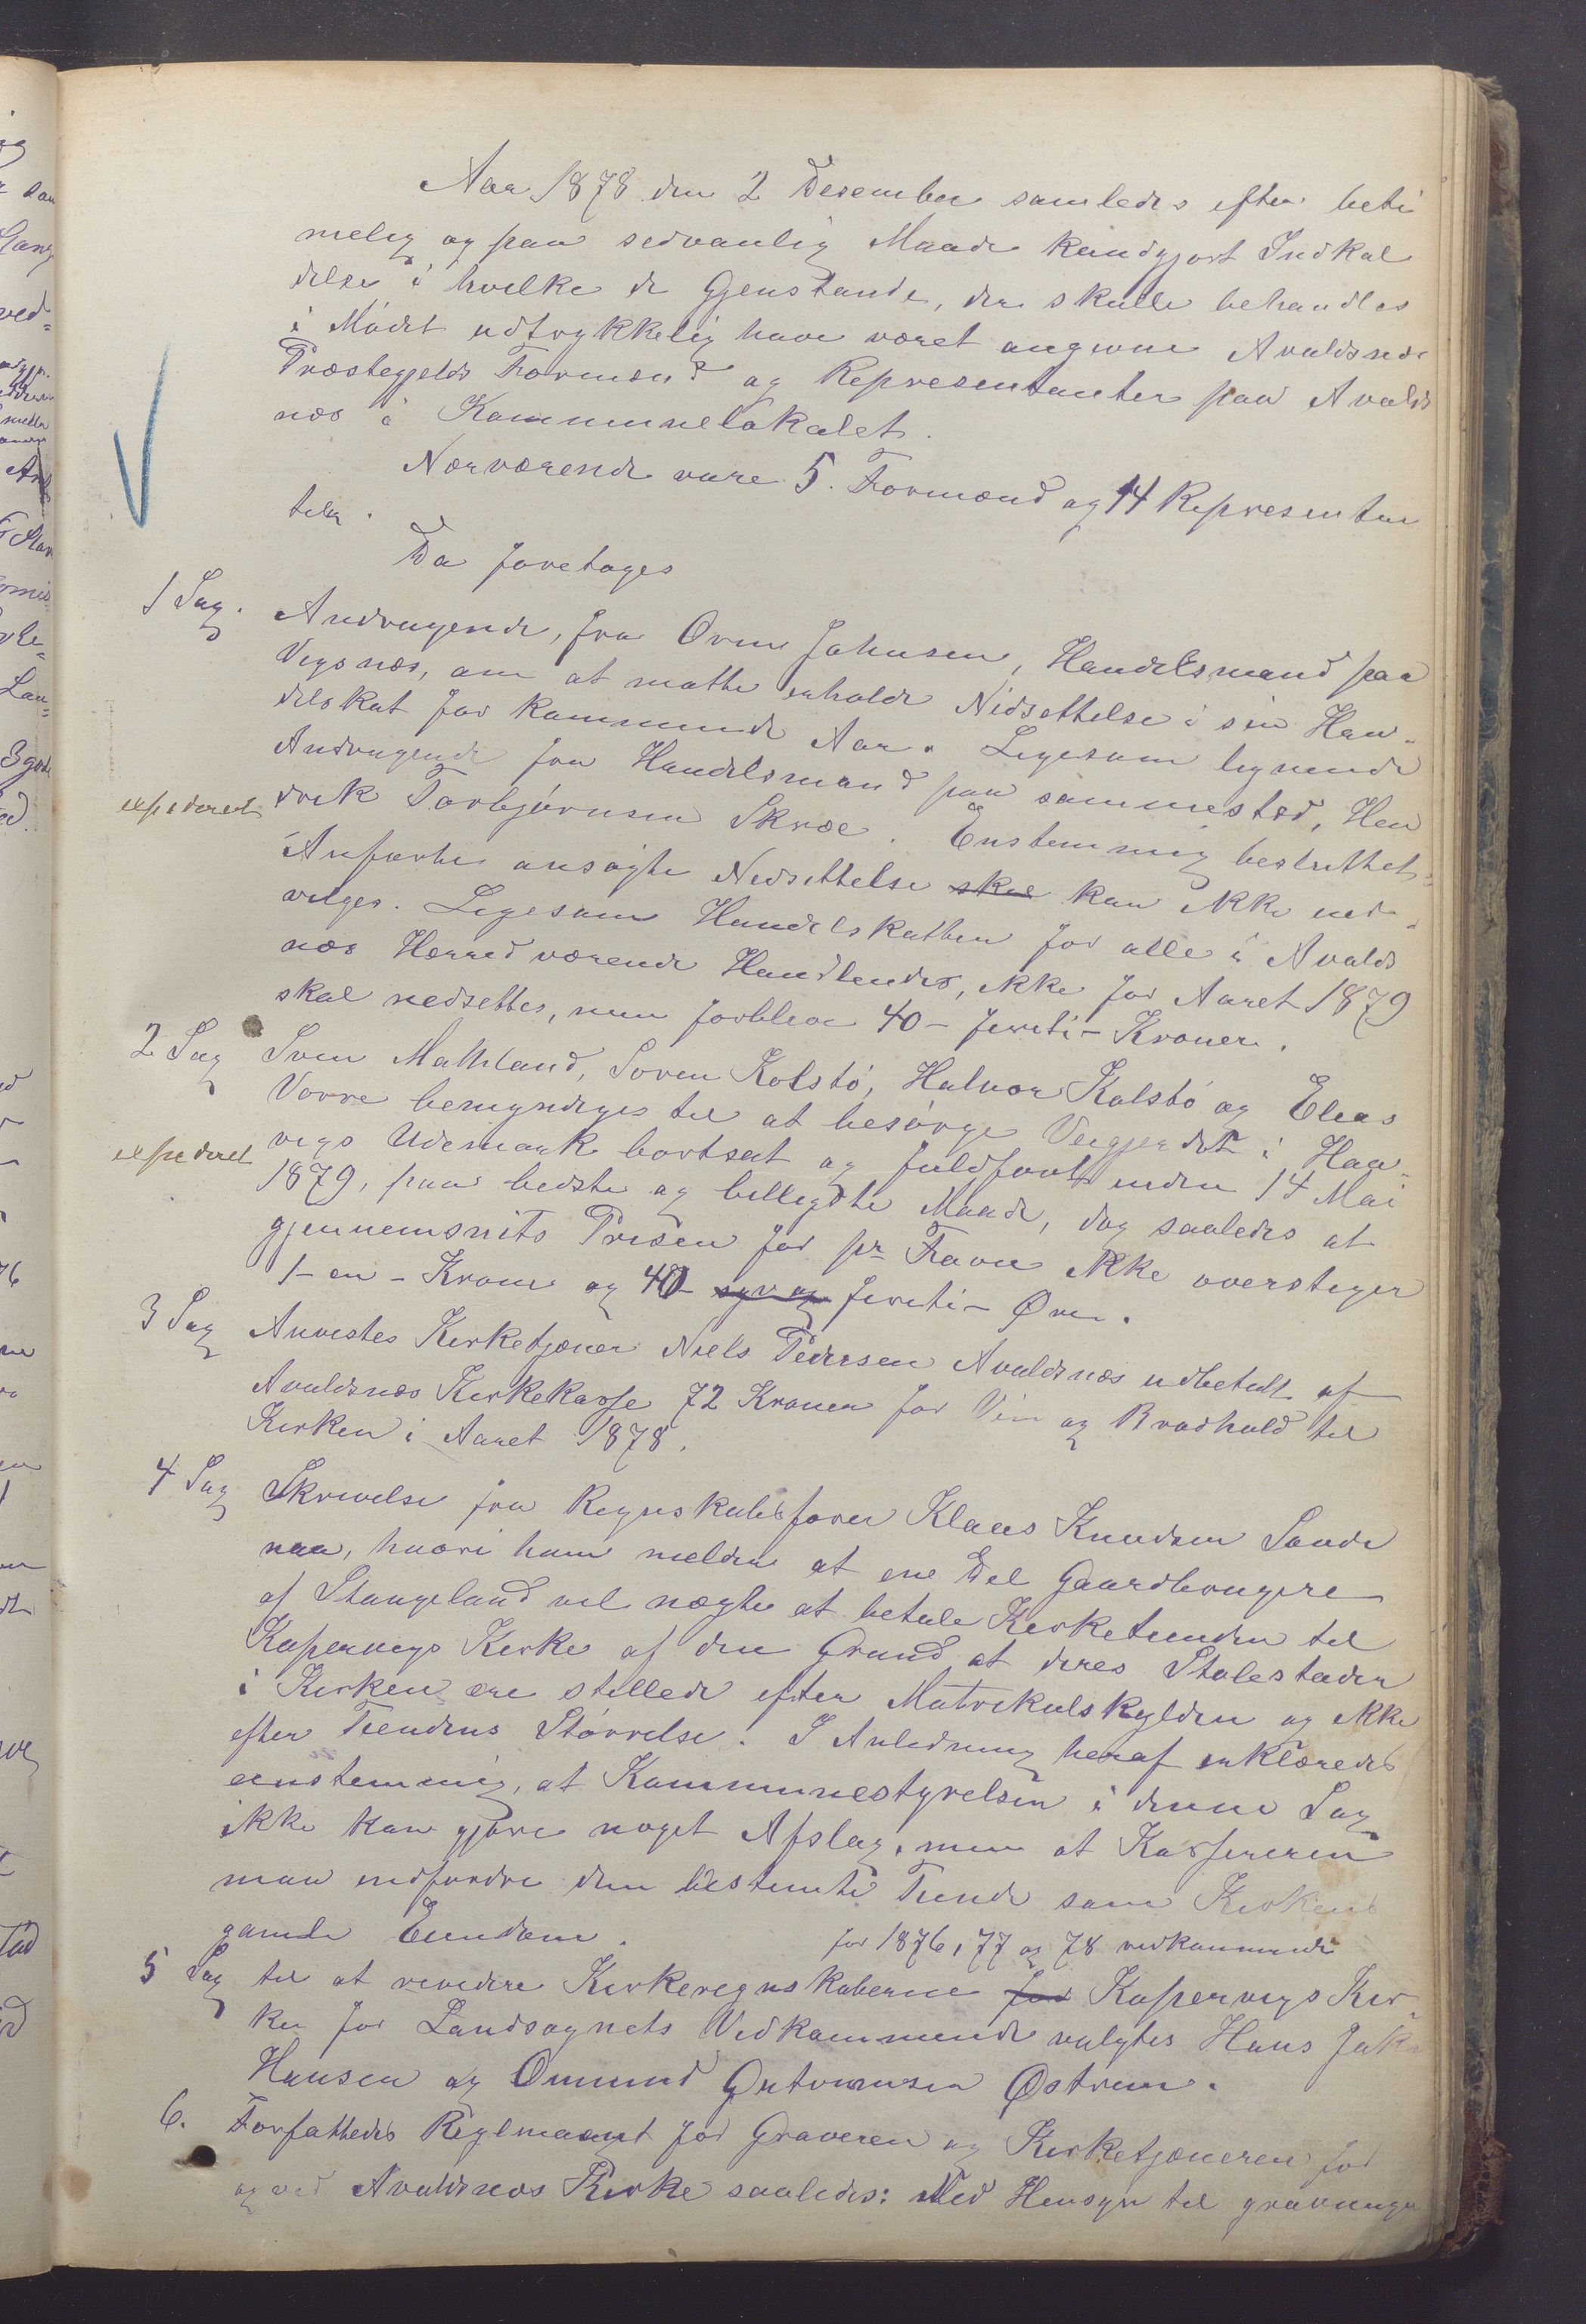 Aar 1878 den 2 Desember samledes efter beti
melig og paa sedvanlig Maade kundgjort Indkal
delse i hvilke de Gjenstande, der skulle behandles
i Mødet udtrykkelig have været angivne Avaldsnes
Præstegjelds Formænd og Representanter paa Avalds
nes i Kommunelokalet.
Nærværende vare 5. Formænd og 14 Representan
ter.
Da foretages
1 Sag. Andragende, fra Orm Johnsen, Handelsmand paa
Vigsnes, om at maatte erholde Nedsettelse i sin Han-
delskat for kommende Aar. Ligesom lignende
Andragende fra Handelsmand paa sammested, Hen
expederet drik Torbjørnsen Skree. Enstemmig besluttet:
Anførte ansøgte Nedsettelse skal kan ikke ind-
vilges. Ligesom Handelskatten for alle i Avalds
nes Herred værende Handlende, ikke for Aaret 1879
skal nedsettes, men forblive 40 - firti - Kroner.
2 Sag Sven Mathland, Soren Kolstø, Halvor Kolstø og Elias
Vorre bemyndiges til at besørge Veigjerdet i Haa-
expederet vigs Udemark bortsat og fuldført inden 14 Mai
1879, paa bedste og billigste Maade, dog saaledes at
gjennemsnits Prisen for pr Favn ikke overstiger
1 - en - Krone og 40 - syv og firti - Øre.
3 Sag Anvistes Kirketjener Niels Pedersen Avaldsnes udbetalt af
Avaldsnes Kirkekasse 72 Kroner for Vin og Brødhold til
Kirken i Aaret 1878.
4 Sag Skrivelse fra Regnskabsfører Klaus Knudsen Sande
naa, hvori ham melder at ene Del Gaardbrugere
af Stangeland vil nægte at betale Kirketienden til
Kopervigs Kirke af den Grund at deres Stolestader
i Kirken ere stillede efter Matrikulskylden og ikke
efter Tiendens Størrelse. I Anledning heraf erklæredes
eenstemmig, at Kommunestyrelsen i denne Sag
ikke kan gjøre noget Afslag, men at Kassereren
maa indfordre den bestemte Tiende som Kirkens
gamle Eiendom.
for 1876, 77 og 78 vedkommende
5 Sag til at revidere Kirkeregnskaberne for Kopervigs Kir-
ke for Landsognets Vedkommende valgtes Hans Jak
Hansen og Omund Guttormsen Østrem.
6. Forfattedes Reglmaant for Graveren og Kirketjeneren for
og ved Avaldsnes Kirke saaledes: Med Hensyn til gravninge